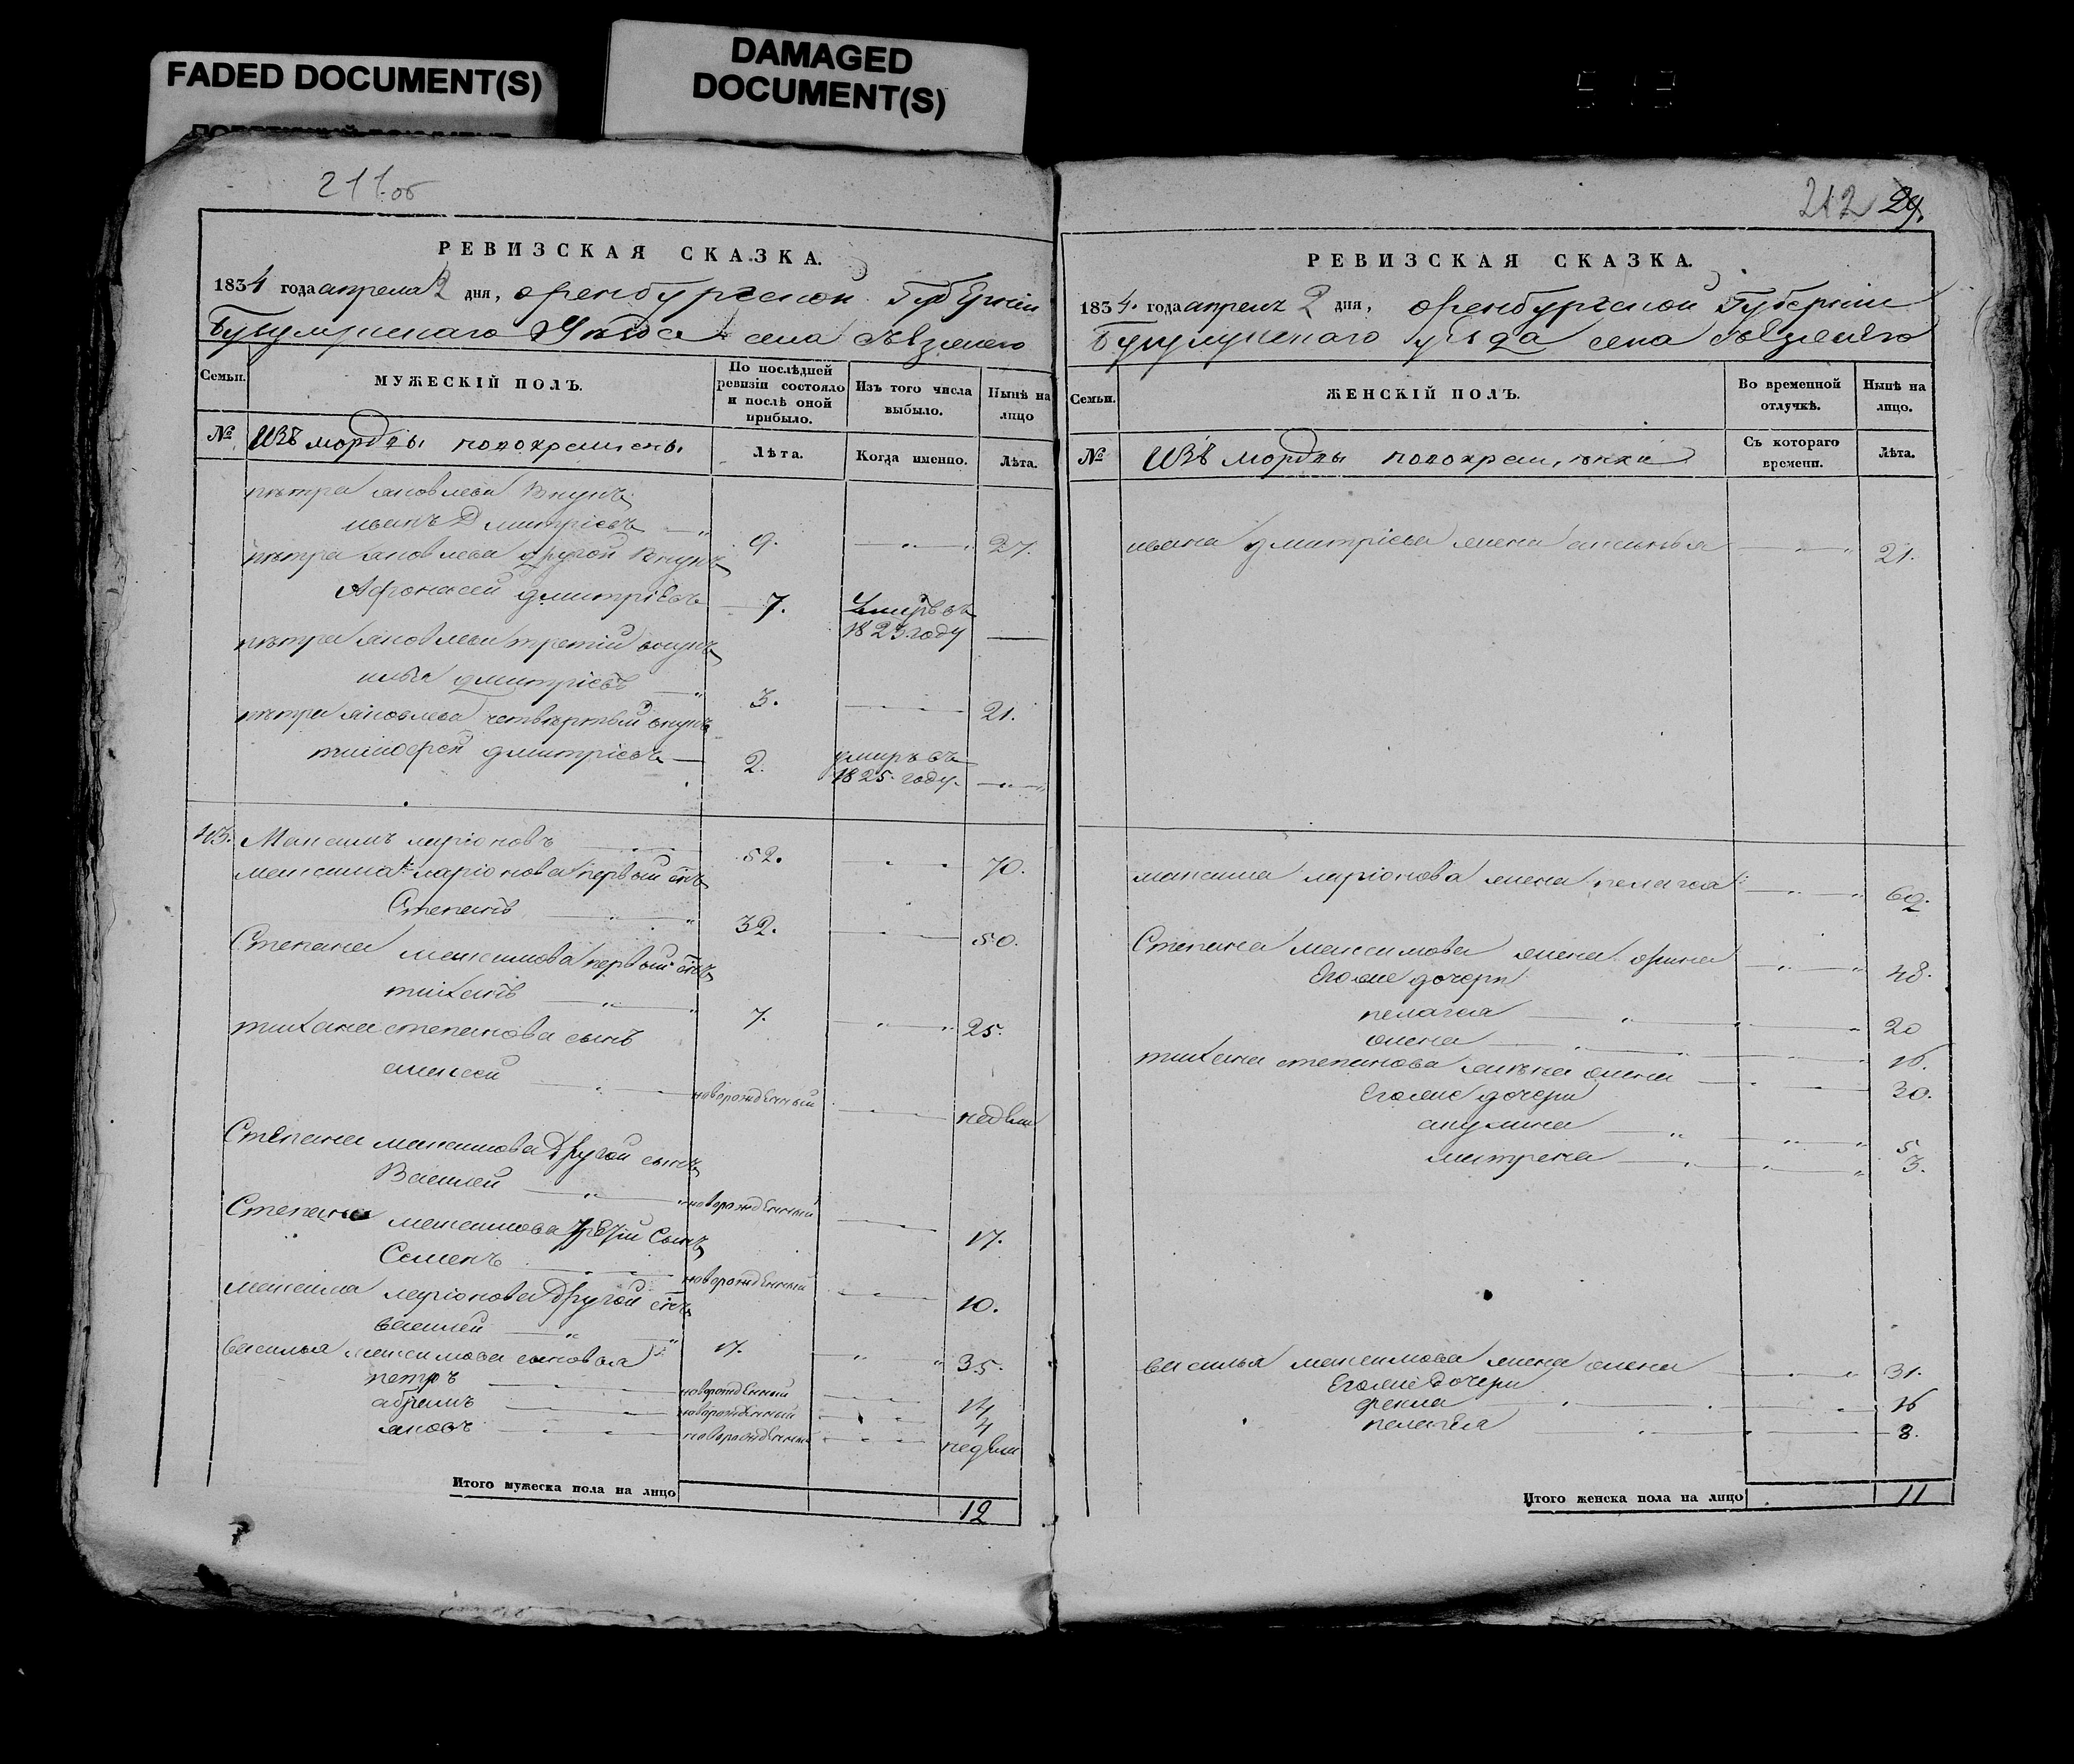 FADED DOCUMENT(S)
DAMAGED
DOCUMENT(S)
211об
РЕВИЗСКАЯ СКАЗКА.
1834 года апреля 2 дня, оренбургской Губернии
Бугульминского Уезда села
Семьи.
МУЖЕСКІЙ ПОЛЪ.
По послѣдней ревизіи состояло и послѣ оной прибыло.
Изъ того числа выбыло.
Нынѣ на лицо
№
Изъ мордвы новокрещены
Лѣта.
Когда именно.
Лѣта.
петра яковлева внукъ
иванъ Дмитріевъ 9. 27.
петра яковлева другой внукъ
Афонасей дмитріевъ 7. Умиръ въ 1823 году
петра яковлева третій внукъ
илья дмитріевъ 3. 21.
петра яковлева четвертый внукъ
тимофей дмитріевъ 2. умиръ въ 1825 году.
43. Максимъ ларіоновъ 52. 70.
максима ларіонова первый снъ
Степанъ 32. 50.
Степана максимова первый снъ
тихонъ 7. 25.
тихана степанова сынъ
алексей новорожденный недели
Степана максимова Другой сынъ
Василей новорожденный 17.
Степана максимова Третій Сынъ
Семенъ новорожденный 10.
максима ларіонова Другой снъ
василей 17. 35.
василья максимова сыновья
петръ новорожденный 14
абрамъ новорожденный 4
яковъ новорожденный недели
Итого мужеска пола на лицо 12
212 29.
РЕВИЗСКАЯ СКАЗКА.
1834. года апреля 2 дня, оренбургской Губернии
Бугульминского уезда села
Семьи.
ЖЕНСКІЙ ПОЛЪ.
Во временной отлучкѣ.
Нынѣ на лицо.
№
Изъ мордвы новокрещенки
Съ котораго времени.
Лѣта.
ивана дмитріева жена 21.
максима ларіонова жена пелагея 69.
Степана максимова жена орина 48.
Егоже дочери
пелагея 20
олена 16.
тихана степанова жена олена 30.
Егоже дочери
акулина 5
матрена 3.
василья максимова жена олена 31.
Егоже дочери
фекла 16
пелагея 8.
Итого женска пола на лицо 11